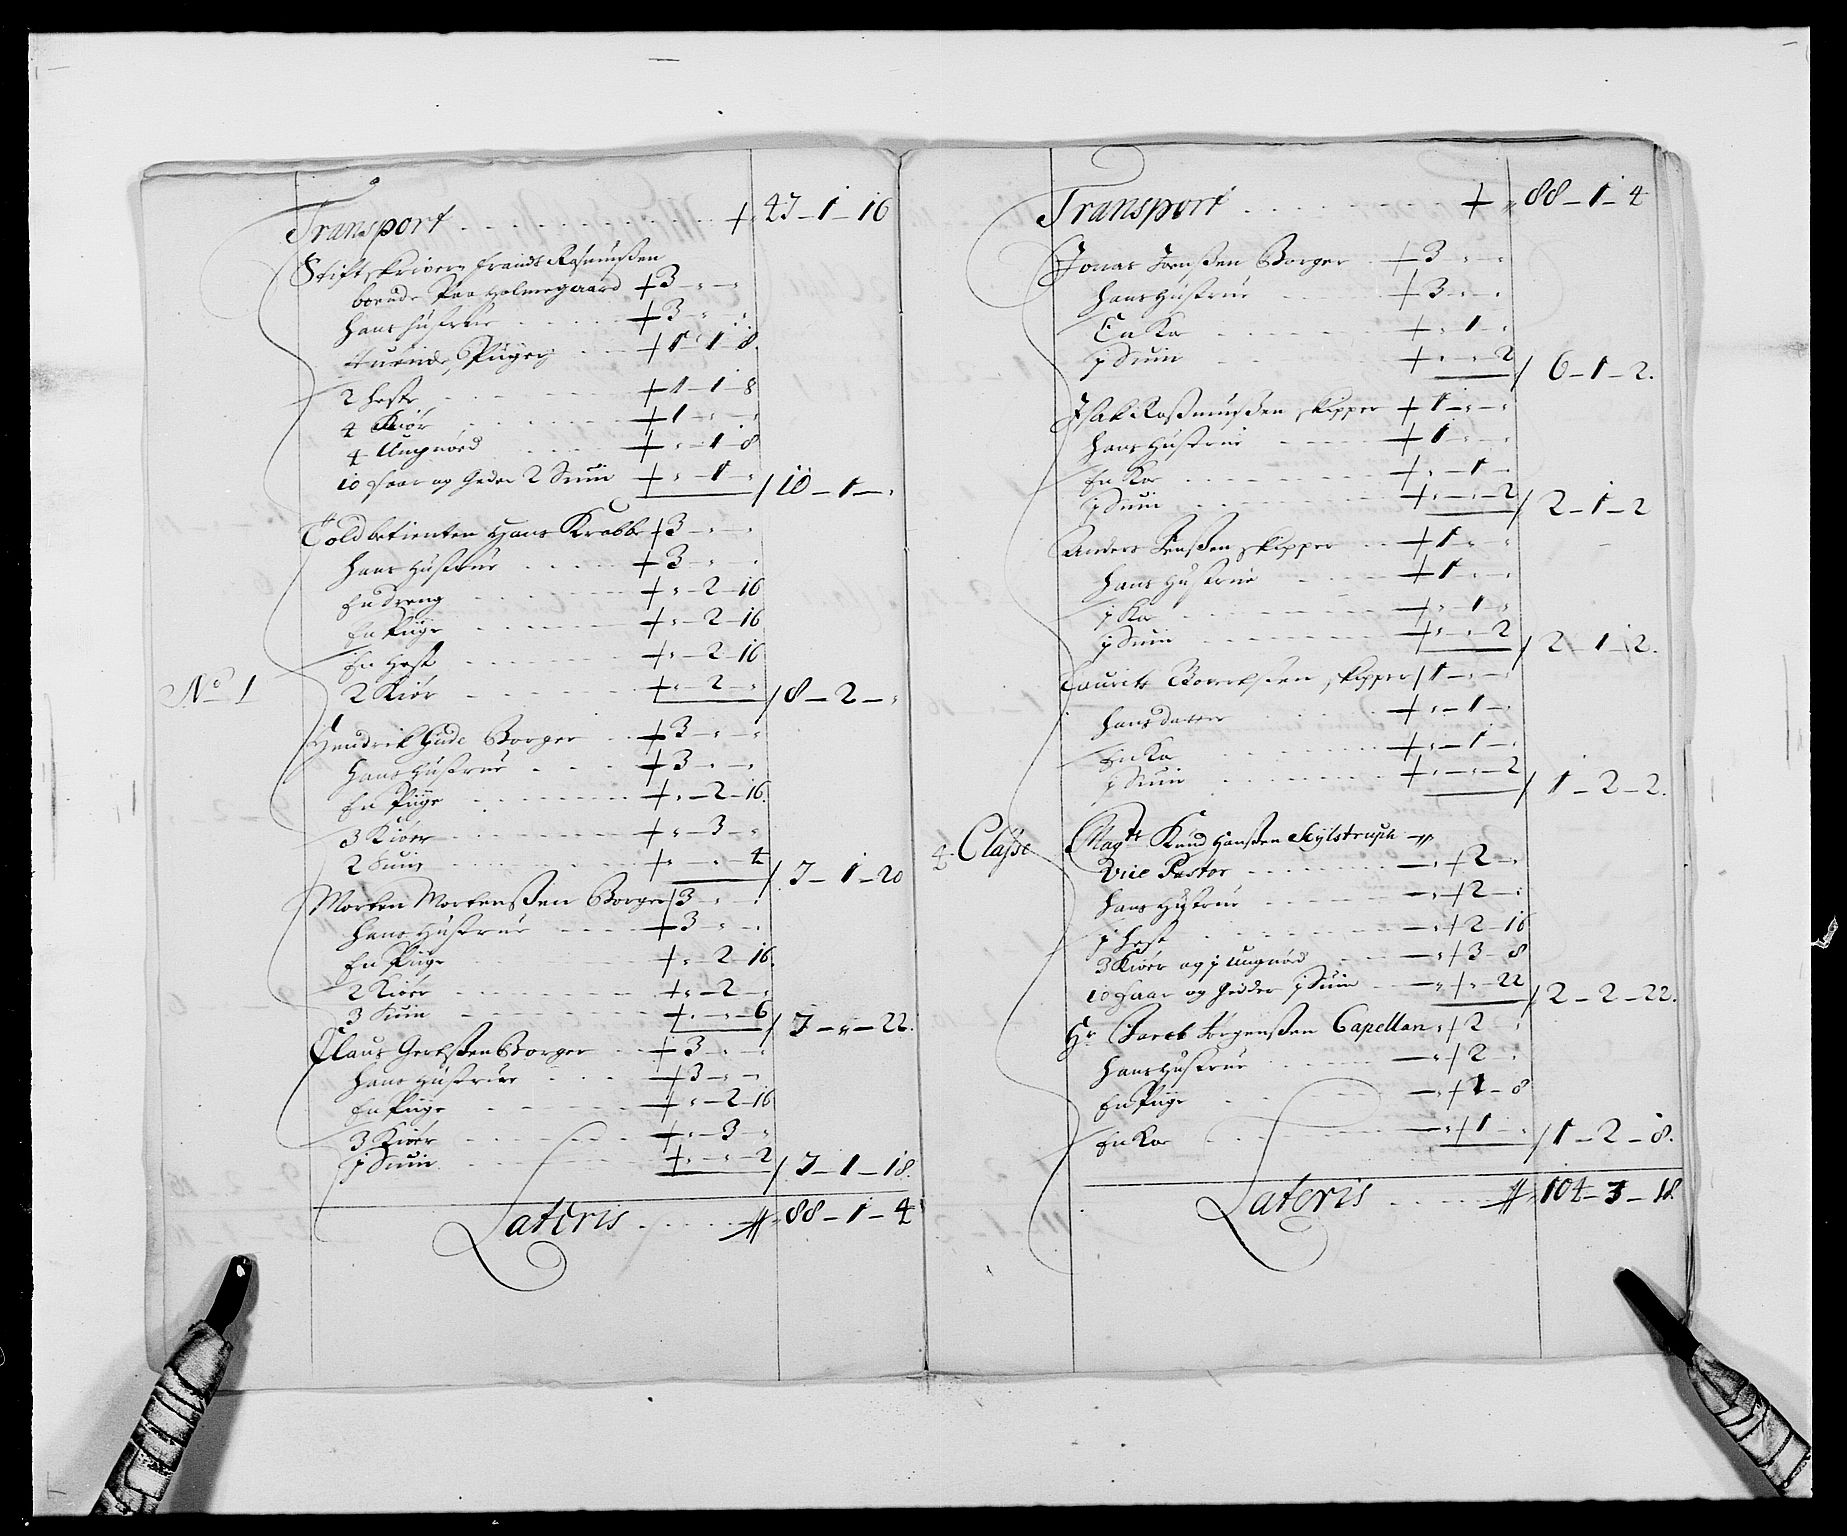 Transport . . . . . . . + 47 – 1 – 16
Stiftskrivern Frands Rasmußen
boende Paa Holmegaard + 3 – „ – „
hans hustrue . . . + 3 – „ – „
Piiger . . + 1 – 1 – 8
2 heste . . . + 1 – 1 – 8
4 Kiör . . . + 1 – „ – „
4 Ungnöed . . . + „ – 1 – 8
10 faar og Geder 2 Suin + „ – 1 – „ / 10 – 1 – „
Toldbetienten Hans Krabbe + 3 – „ – „
hans hustrue . . . + 3 – „ – „
En dreng . . . + „ – 2 – 16
En Piige . . . + „ – 2 – 16
En Hest . . . + „ – 2 – 16
No 1
2 Kiör . . . + „ – 2 – „ / 8 – 2 – „
Hendrik Gude Borger . . + 3 – „ – „
hans Hustrue . . . + 3 – „ – „
En Piige . . . + „ – 2 – 16
3 Kiöer . . . + „ – 3 – „
2 Suin . . . + „ – „ – 4 / 7 – 1 – 20
Morten Mortenßen Borger + 3 – „ – „
hans Hustrue . . . + 3 – „ – „
En Piige . . . + „ – 2 – 16
2 Kiöer . . . + „ – 2 – „
3 Suin . . . + „ – „ – 6 / 7 – „ – 22
Claus Gertßen Borger . . + 3 – „ – „
hans Hustrue . . . + 3 – „ – „
En Piige . . . + „ – 2 – 16
3 Kiöer . . . + „ – 3 – „
1 Suin . . . + „ – „ – 2 / 7 – 1 – 18
Lateris . . . . 88 – 1 – 4
Transport . . . . . . . + 88 – 1 – 4
Jonas Jenßen Borger . + 3 – „ – „
hans hustrue . . . + 3 – „ – „
En Ko . . . + „ – 1 – „
1 Suin . . . + „ – „ – 2 / 6 – 1 – 2
Isak Raßmußen skipper + 1 – „ – „
hans Hustrue . . . + 1 – „ – „
En Ko . . . + „ – 1 – „
1 Suin . . . + „ – „ – 2 / 2 – 1 – 2
Anders Jenßen skipper . . + 1 – „ – „
hans Hustrue . . . + 1 – „ – „
1 Ko . . . + „ – 1 – „
1 Suin . . . + „ – „ – 2 / 2 – 1 – 2
Laurits skipper + 1 – „ – „
hans datter . . . + „ – 1 – „
En Ko . . . + „ – 1 – „
1 Suin . . . + „ – „ – 2 / 1 – 2 – 2
4. Classe
Magtr Knud Hanßen Kylstruph
Vice Pastor . . . – „ + 2 – „
hans Hustrue . . . – „ + 2 – „
1 hest . . . – „ + 2 – 16
3 Kiöer og 1 Ungnöd . . – „ + 3 – 8
10 faar og Geder 1 Suin . . – „ + „ – 22 / 2 – 2 – 22
Hr Jacob Jörgenßen Capellan „ + 2 – „
hans Hustrue . . . – „ + 2 – „
En Piige . . . – „ + 1 – 8
En Ko . . . – „ + 1 – „ / 1 – 2 – 8
Lateris . . . . 104 – 3 – 18